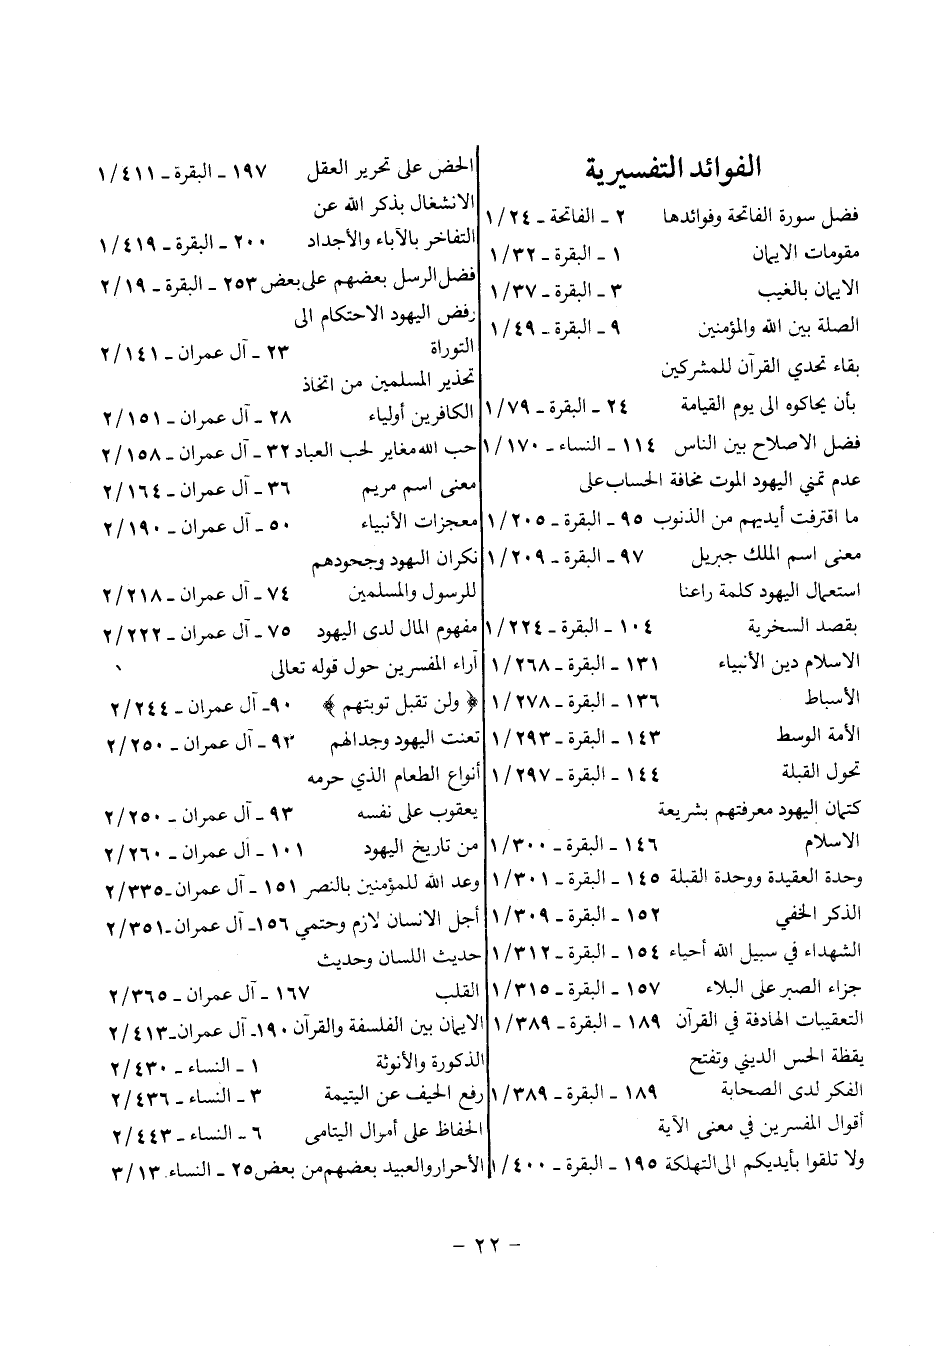 الفوائد التفسيرية
فضل سورة الفاتحة وفوائدها ٢ ـ الفاتحة ـ ١/٢٤
مقومات الايمان ١ ـ البقرة ـ ١/٣٢
الايمان بالغيب ٣ ـ البقرة ـ ١/٣٧
الصلة بين الله والمؤمنين ٩ ـ البقرة ـ ١/٤٩
بقاء تحدي القرآن للمشركين
بأن يحاكوه الى يوم القيامة ٢٤ ـ البقرة ـ ١/٧٩
فضل الاصلاح بين الناس ١١٤ ـ النساء ـ ١/١٧٠
عدم تمني اليهود الموت مخافة الحساب على
ما اقترفت أيديهم من الذنوب ٩٥ ـ البقرة ـ ١/٢٠٥
معنى اسم الملك جبريل ٩٧ ـ البقرة ـ ١/٢٠٩
استعمال اليهود كلمة راعنا
بقصد السخرية ١٠٤ ـ البقرة ـ ١/٢٢٤
الاسلام دين الأنبياء ١٣١ ـ البقرة ـ ١/٢٦٨
الأسباط ١٣٦ ـ البقرة ـ ١/٢٧٨
الأمة الوسط ١٤٣ ـ البقرة ـ ١/٢٩٣
تحول القبلة ١٤٤ ـ البقرة ـ ١/٢٩٧
كتمان اليهود معرفتهم بشريعة
الاسلام ١٤٦ ـ البقرة ـ ١/٣٠٠
وحدة العقيدة ووحدة القبلة ١٤٥ ـ البقرة ـ ١/٣٠١
الذكر الخفي ١٥٢ ـ البقرة ـ ١/٣٠٩
الشهداء في سبيل الله أحياء ١٥٤ ـ البقرة ـ ١/٣١٢
جزاء الصبر على البلاء ١٥٧ ـ البقرة ـ ١/٣١٥
التعقيبات الهادفة في القرآن ١٨٩ ـ البقرة ـ ١/٣٨٩
يقظة الحس الديني وتفتح
الفكر لدى الصحابة ١٨٩ ـ البقرة ـ ١/٣٨٩
أقوال المفسرين في معنى الآية
ولا تلقوا بأيديكم الى التهلكة ١٩٥ ـ البقرة ـ ١/٤٠٠
الحض على تحرير العقل ١٩٧ ـ البقرة ـ ١/٤١١
الانشغال بذكر الله عن
التفاخر بالآباء والأجداد ٢٠٠ ـ البقرة ـ ١/٤١٩
فضل الرسل بعضهم على بعض ٢٥٣ ـ البقرة ـ ٢/١٩
رفض اليهود الاحتكام الى
التوراة ٢٣ ـ آل عمران ـ ٢/١٤١
تحذير المسلمين من اتخاذ
الكافرين أولياء ٢٨ ـ آل عمران ـ ٢/١٥١
حب الله مغاير لحب العباد ٣٢ ـ آل عمران ـ ٢/١٥٨
معنى اسم مريم ٣٦ ـ آل عمران ـ ٢/١٦٤
معجزات الأنبياء ٥٠ ـ آل عمران ـ ٢/١٩٠
نكران اليهود وجحودهم
للرسول والمسلمين ٧٤ ـ آل عمران ـ ٢/٢١٨
مفهوم المال لدى اليهود ٧٥ ـ آل عمران ـ ٢/٢٢٢
آراء المفسرين حول قوله تعالى
﴿ ولن تقبل توبتهم ﴾ ٩٠ـ آل عمران ـ ٢/٢٤٤
تعنت اليهود وجدالهم ٩٣ ـ آل عمران ـ ٢/٢٥٠
أنواع الطعام الذي حرمه
يعقوب على نفسه ٩٣ ـ آل عمران ـ ٢/٢٥٠
من تاريخ اليهود ١٠١ ـ آل عمران ـ ٢/٢٦٠
وعد الله للمؤمنين بالنصر ١٥١ ـ آل عمران ـ ٢/٣٣٥
أجل الانسان لازم وحتمي ١٥٦ـ آل عمران ـ ٢/٣٥١
حديث اللسان وحديث
القلب ١٦٧ ـ آل عمران ـ ٢/٣٦٥
الايمان بين الفلسفة والقرآن ١٩٠ـ آل عمران ـ ٢/٤١٣
الذكورة والأنوثة ١ ـ النساء ـ ٢/٤٣٠
رفع الحيف عن اليتيمة ٣ ـ النساء ـ ٢/٤٣٦
الحفاظ على أموال اليتامى ٦ ـ النساء ـ ٢/٤٤٣
الأحرار والعبيد بعضهم من بعض ٢٥ ـ النساء ـ ٣/١٣
ـ ٢٢ ـ